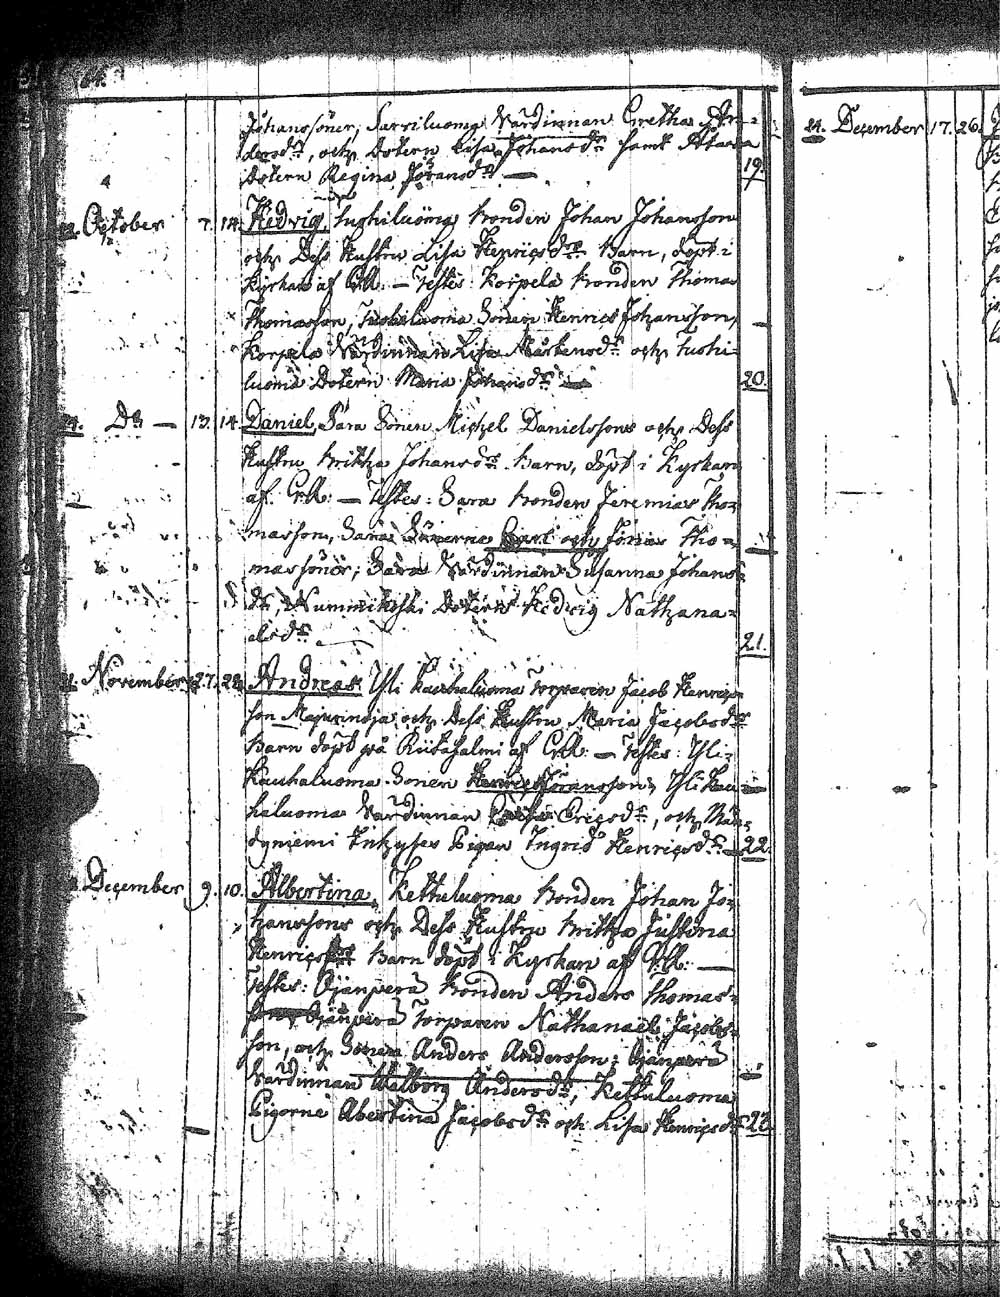 64.
Johanssöner, Sarriluoma Värdinnan Gretha An-
dersdr, och Dotern Lisa Johansdr samt
Dotern Regina Jöransdr — 19.
October 7. 14. Hedvig, Tushiluoma bonden Johan Johansson
och Dess Hustru Lisa Henricsdrs Barn, döpt i
Kyrkan af — Testes: Korpela bonden Thomas
Thomasson, Sonen Henric Johansson,
Korpela Värdinnan Lisa Mårtensdr och Tushi-
luoma Dotern Maria Johansdr — 20.
Do — 13. 14. Daniel, Sara Sonen Michel Danielssons och Dess
Hustru Britha Johansdrs Barn, döpt i Kyrkan
af — Testes: Sara bonden Jeremias Tho-
masson, Sara Sönerne Carl och Jonas Tho-
massöner; Sara Värdinnan Susanna Johans-
dr, Nummikoski Dotern Hedvig Nathana-
elsdr 21.
November 27. 28. Andreas Yli Kauhaluoma Torparen Jacob Henrics-
son Majurinoja och Dess Hustru Maria Jacobsdrs
Barn döpt på Riitasalmi af — Testes: Yli-
Kauhaluoma Sonen Henric Jöransson, Yli Kau-
haluoma Värdinnan Ericsdr, och
Pigan Ingrid Henricsdr — 22.
December 9. 10. Albertina, Kettuluoma bonden Johan Jo-
hanssons och Dess Hustru Britha Justina
Henricsdrs Barn döpt i Kyrkan af —
Testes: Ojanperä bonden Anders Thomas-
son, Ojanperä Torparen Nathanaël Jacobs-
son, och Sonen Anders Andersson; Ojanperä
Värdinnan Walborg Andersdr, Kettuluoma
Pigorne Abertina Jacobsdr och Lisa Henricsdr 23.
December 17. 26.